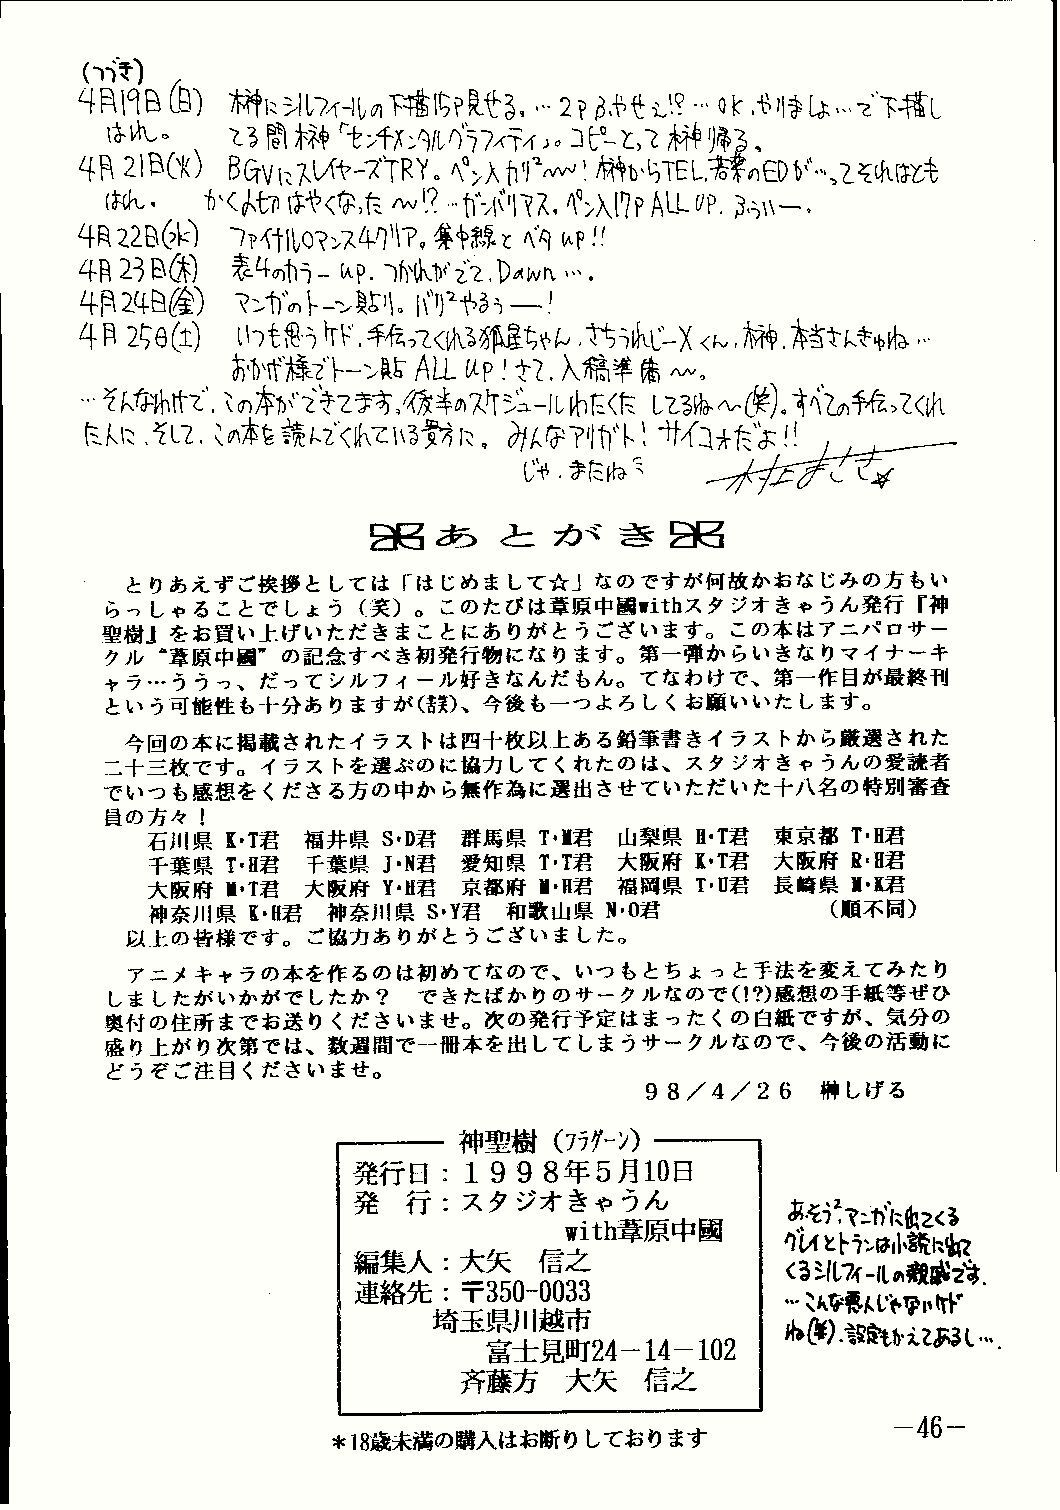 (つづき)
4月19日(日) 榊にシルフィールの下描15P見せる。…2Pふやせぇ!?…OK、やりましょ…で下描し
はれ。 てる間榊「センチメンタルグラフィティ」。コピーとって榊帰る。
4月21日(火) BGVにスレイヤーズTRY。ペン入カリ²〜〜!榊からTEL、若葉のEDが…ってそれはとも
はれ。 かく〆切はやくなった〜!?…ガンバリアス。ペン入17P ALL UP. ふぅぃー.
4月22日(水) ファイナルロマンス4クリア。集中線とベタup!!
4月23日(木) 表4のカラーup. つかれがでて、Dawn….
4月24日(金) マンガのトーン貼り。バリ²やるぅー!
4月25日(土) いつも思うケド、手伝ってくれる狐星ちゃん、さちうれじーXくん、榊、本当さんきゅね…
おかげ様でトーン貼ALL UP!さて、入稿準備〜。
…そんなわけで、この本ができてます。後半のスケジュールわたくた してるね〜(笑)。すべての手伝ってくれ
た人に、そして、この本を読んでくれている貴方に。みんなアリガト!サイコォだよ!!
じゃ、またねミ
あとがき
とりあえずご挨拶としては「はじめまして☆」なのですが何故かおなじみの方もい
らっしゃることでしょう（笑）。このたびは葦原中國withスタジオきゃうん発行『神
聖樹』をお買い上げいただきまことにありがとうございます。この本はアニパロサー
クル“葦原中國”の記念すべき初発行物になります。第一弾からいきなりマイナーキ
ャラ…ううっ、だってシルフィール好きなんだもん。てなわけで、第一作目が最終刊
という可能性も十分ありますが(誤)、今後も一つよろしくお願いいたします。
今回の本に掲載されたイラストは四十枚以上ある鉛筆書きイラストから厳選された
二十三枚です。イラストを選ぶのに協力してくれたのは、スタジオきゃうんの愛読者
でいつも感想をくださる方の中から無作為に選出させていただいた十八名の特別審査
員の方々！
石川県 K・T君 福井県 S・D君 群馬県 T・M君 山梨県 H・T君 東京都 T・H君
千葉県 T・H君 千葉県 J・N君 愛知県 T・T君 大阪府 K・T君 大阪府 R・H君
大阪府 M・T君 大阪府 Y・H君 京都府 M・H君 福岡県 T・U君 長崎県 M・K君
神奈川県 K・H君 神奈川県 S・Y君 和歌山県 N・O君 （順不同）
以上の皆様です。ご協力ありがとうございました。
アニメキャラの本を作るのは初めてなので、いつもとちょっと手法を変えてみたり
しましたがいかがでしたか？ できたばかりのサークルなので(!?)感想の手紙等ぜひ
奥付の住所までお送りくださいませ。次の発行予定はまったくの白紙ですが、気分の
盛り上がり次第では、数週間で一冊本を出してしまうサークルなので、今後の活動に
どうぞご注目くださいませ。
９８／４／２６ 榊しげる
神聖樹（フラグーン）
発行日：１９９８年５月10日
発 行：スタジオきゃうん
with葦原中國
編集人：大矢 信之
連絡先：〒350-0033
埼玉県川越市
富士見町24－14－102
斉藤方 大矢 信之
＊18歳未満の購入はお断りしております
あ、そう²、マンガに出てくる
グレイとトランは小説に出て
くるシルフィールの親戚です.
…こんな悪人じゃないケド
ね(笑). 設定もかえてあるし….
－46－